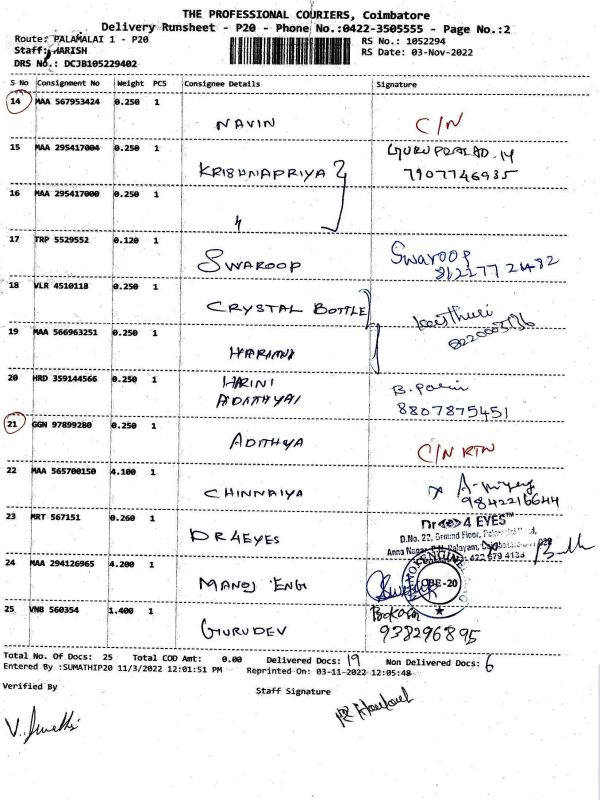 THE PROFESSIONAL COURIERS, Coimbatore
Delivery Runsheet - P20 - Phone No.:0422-3505555 - Page No.:2
Route: PALAMALAI 1 - P20
RS No.: 1052294
Staff: HARISH
RS Date: 03-Nov-2022
DRS No.: DCJB105229402
S No Consignment No Weight PCS Consignee Details Signature
14 MAA 567953424 0.250 1
NAVIN C/N
15 MAA 295417004 0.250 1
KRISHNAPRIYA
7907746935
16 MAA 295417000 0.250 1
17 TRP 5529552 0.120 1
SWAROOP Swaroop
18 VLR 4510118 0.250 1
CRYSTAL BOTTLE
19 MAA 566963251 0.250 1
20 HRD 359144566 0.250 1
HARINI
8807875451
21 GGN 97899280 0.250 1
ADITHYA C/N RTN
22 MAA 565700150 4.100 1
CHINNAIYA
9842216644
23 MRT 567151 0.260 1
DR4EYES
4 EYES
D.No. 22, Ground Floor,
24 MAA 294126965 4.200 1
MANOJ ENG
CBE-20
25 VNB 560354 1.400 1
GURUDEV
938296895
Total No. Of Docs: 25 Total COD Amt: 0.00 Delivered Docs: 19 Non Delivered Docs: 6
Entered By :SUMATHIP20 11/3/2022 12:01:51 PM Reprinted On: 03-11-2022 12:05:48
Verified By
Staff Signature